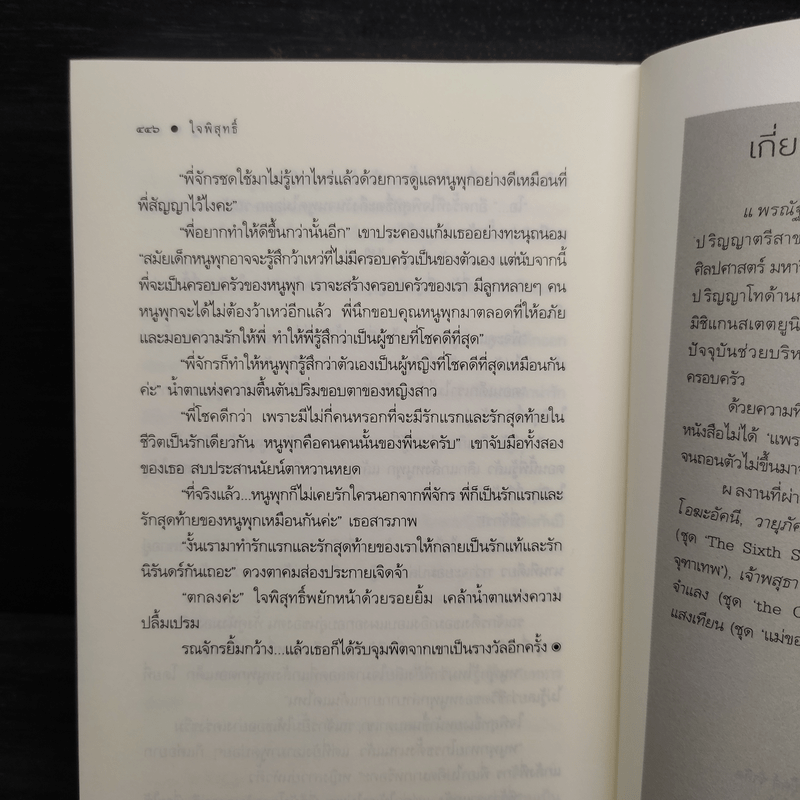 ๔๔๖ ● ใจพิสุทธิ์
"พี่จักรชดใช้มาไม่รู้เท่าไหร่แล้วด้วยการดูแลหนูพุกอย่างดีเหมือนที่
พี่สัญญาไว้ไงคะ"
"พี่อยากทำให้ดีขึ้นกว่านั้นอีก" เขาประคองแก้มเธออย่างทะนุถนอม
"สมัยเด็กหนูพุกอาจจะรู้สึกว้าเหว่ที่ไม่มีครอบครัวเป็นของตัวเอง แต่นับจากนี้
พี่จะเป็นครอบครัวของหนูพุก เราจะสร้างครอบครัวของเรา มีลูกหลายๆ คน
หนูพุกจะได้ไม่ต้องว้าเหว่อีกแล้ว พี่นึกขอบคุณหนูพุกมาตลอดที่ให้อภัย
และมอบความรักให้พี่ ทำให้พี่รู้สึกว่าเป็นผู้ชายที่โชคดีที่สุด"
"พี่จักรก็ทำให้หนูพุกรู้สึกว่าตัวเองเป็นผู้หญิงที่โชคดีที่สุดเหมือนกัน
ค่ะ" น้ำตาแห่งความตื้นตันปริ่มขอบตาของหญิงสาว
"พี่โชคดีกว่า เพราะมีไม่กี่คนหรอกที่จะมีรักแรกและรักสุดท้ายใน
ชีวิตเป็นรักเดียวกัน หนูพุกคือคนคนนั้นของพี่นะครับ" เขาจับมือทั้งสอง
ของเธอ สบประสานนัยน์ตาหวานหยด
"ที่จริงแล้ว...หนูพุกก็ไม่เคยรักใครนอกจากพี่จักร พี่ก็เป็นรักแรกและ
รักสุดท้ายของหนูพุกเหมือนกันค่ะ" เธอสารภาพ
"งั้นเรามาทำรักแรกและรักสุดท้ายของเราให้กลายเป็นรักแท้และรัก
นิรันดร์กันเถอะ" ดวงตาคมส่องประกายเจิดจ้า
"ตกลงค่ะ" ใจพิสุทธิ์พยักหน้าด้วยรอยยิ้ม เคล้าน้ำตาแห่งความ
ปลื้มเปรม
รณจักรยิ้มกว้าง...แล้วเธอก็ได้รับจุมพิตจากเขาเป็นรางวัลอีกครั้ง ◉
เกี่ย
แพรณัฐ
ปริญญาตรีสาข
ศิลปศาสตร์ มหาวิ
ปริญญาโทด้านก
มิชิแกนสเตตยูนิ
ปัจจุบันช่วยบริห
ครอบครัว
ด้วยความที่
หนังสือไม่ได้ 'แพร
จนถอนตัวไม่ขึ้นมาจ
ผลงานที่ผ่า
โอมะอัคนี, วายุภัค
(ชุด 'The Sixth S
จุฑาเทพ'), เจ้าพสุธา
จำแลง (ชุด 'the C
แสงเทียน (ชุด 'แม่ขอ